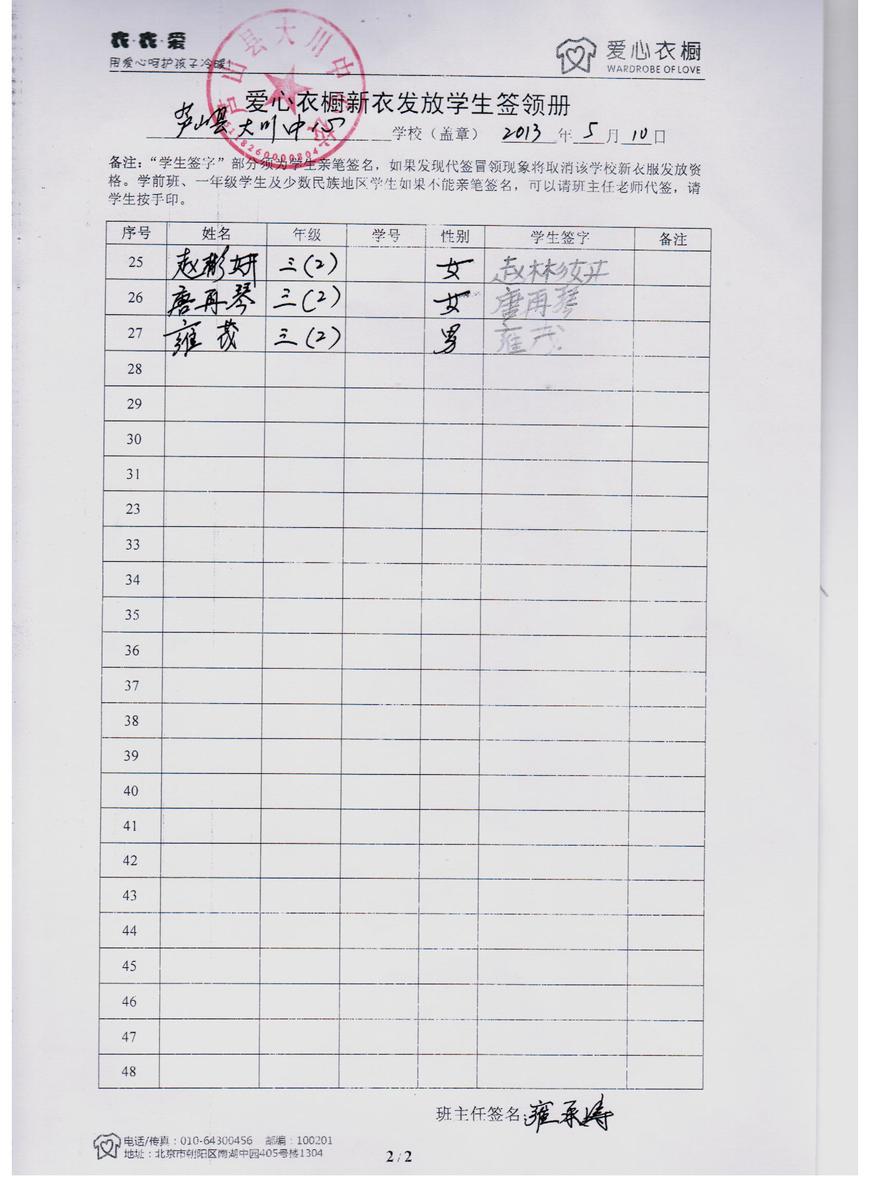 衣·衣·爱
用爱心呵护孩子冷暖!
爱心衣橱
WARDROBE OF LOVE
芦山县大川中
5118260000804
爱心衣橱新衣发放学生签领册
芦山县大川中心 学校（盖章） 2013 年 5 月 10 日
备注：“学生签字”部分须为学生亲笔签名，如果发现代签冒领现象将取消该学校新衣服发放资
格。学前班、一年级学生及少数民族地区学生如果不能亲笔签名，可以请班主任老师代签，请
学生按手印。
序号 姓名 年级 学号 性别 学生签字 备注
25 赵彬妍 三(2) 女 赵彬妍
26 唐再琴 三(2) 女 唐再琴
27 雍茂 三(2) 男 雍茂
28
29
30
31
23
33
34
35
36
37
38
39
40
41
42
43
44
45
46
47
48
班主任签名: 雍承涛
电话/传真：010-64300456 邮编：100201
地址：北京市朝阳区南湖中园405号楼1304
2 / 2